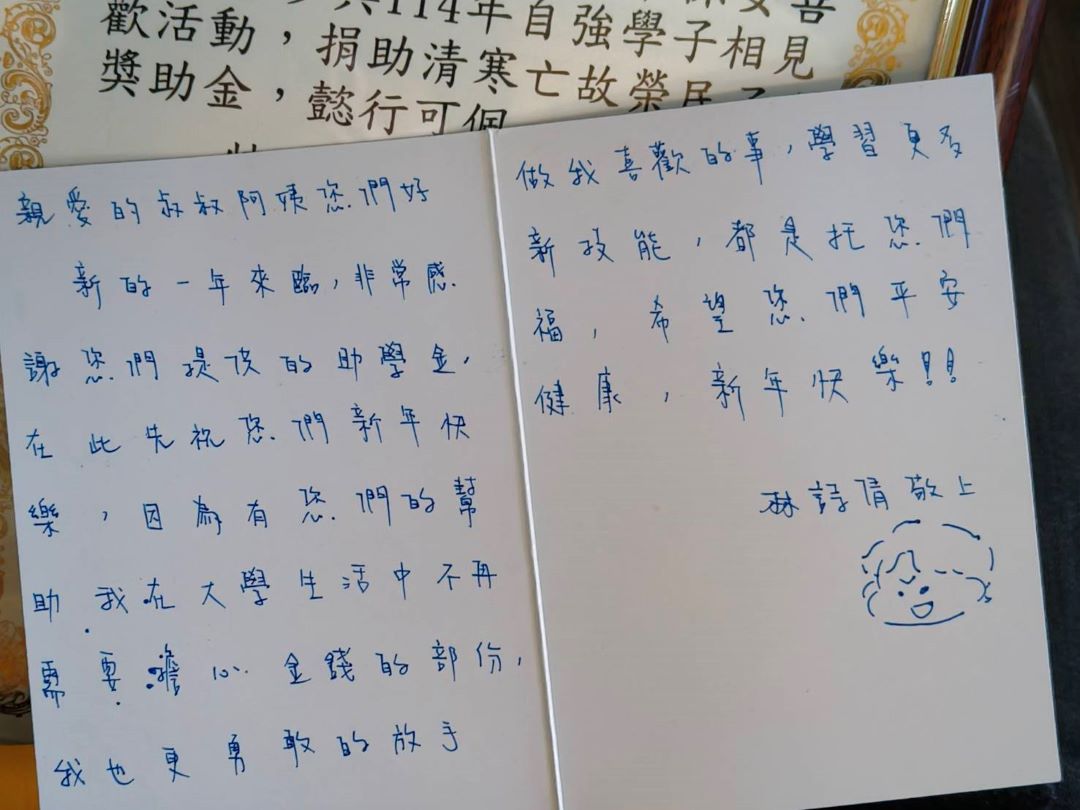 與114年自強學子相見
歡活動，捐助清寒亡故榮民
獎助金，懿行可佩
親愛的叔叔阿姨您們好
新的一年來臨，非常感
謝您們提供的助學金，
在此先祝您們新年快
樂，因為有您們的幫
助，我在大學生活中不再
需要擔心金錢的部份，
我也更勇敢的放手
做我喜歡的事，學習更多
新技能，都是托您們
福，希望您們平安
健康，新年快樂!!
林詩倩敬上